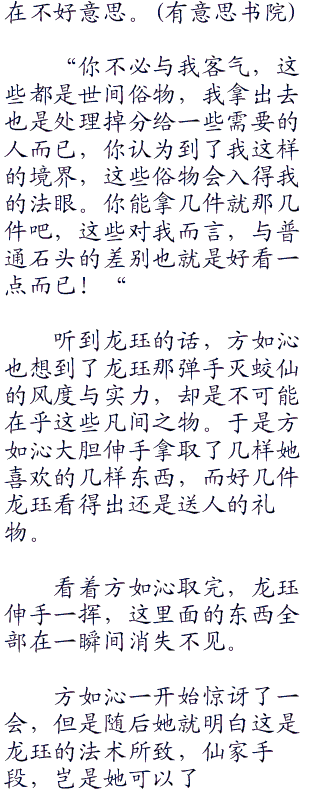 在不好意思。(有意思书院)
“你不必与我客气，这
些都是世间俗物，我拿出去
也是处理掉分给一些需要的
人而已，你认为到了我这样
的境界，这些俗物会入得我
的法眼。你能拿几件就那几
件吧，这些对我而言，与普
通石头的差别也就是好看一
点而已！“
听到龙珏的话，方如沁
也想到了龙珏那弹手灭蛟仙
的风度与实力，却是不可能
在乎这些凡间之物。于是方
如沁大胆伸手拿取了几样她
喜欢的几样东西，而好几件
龙珏看得出还是送人的礼
物。
看着方如沁取完，龙珏
伸手一挥，这里面的东西全
部在一瞬间消失不见。
方如沁一开始惊讶了一
会，但是随后她就明白这是
龙珏的法术所致，仙家手
段，岂是她可以了